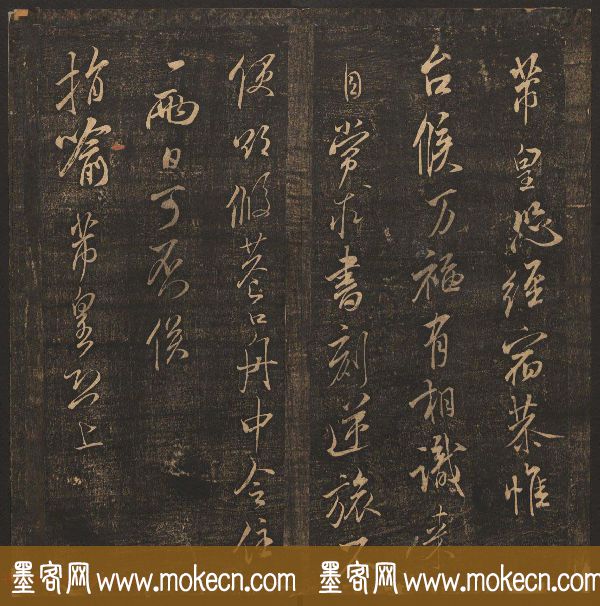 芾皇恐經宿恭惟
台候万福有相識来
自常求書刻逆旅
便
舟中令住
一兩日可否俟
指喻芾皇恐上
墨客网 www.mokecn.com 墨客网 www.mokecn.com